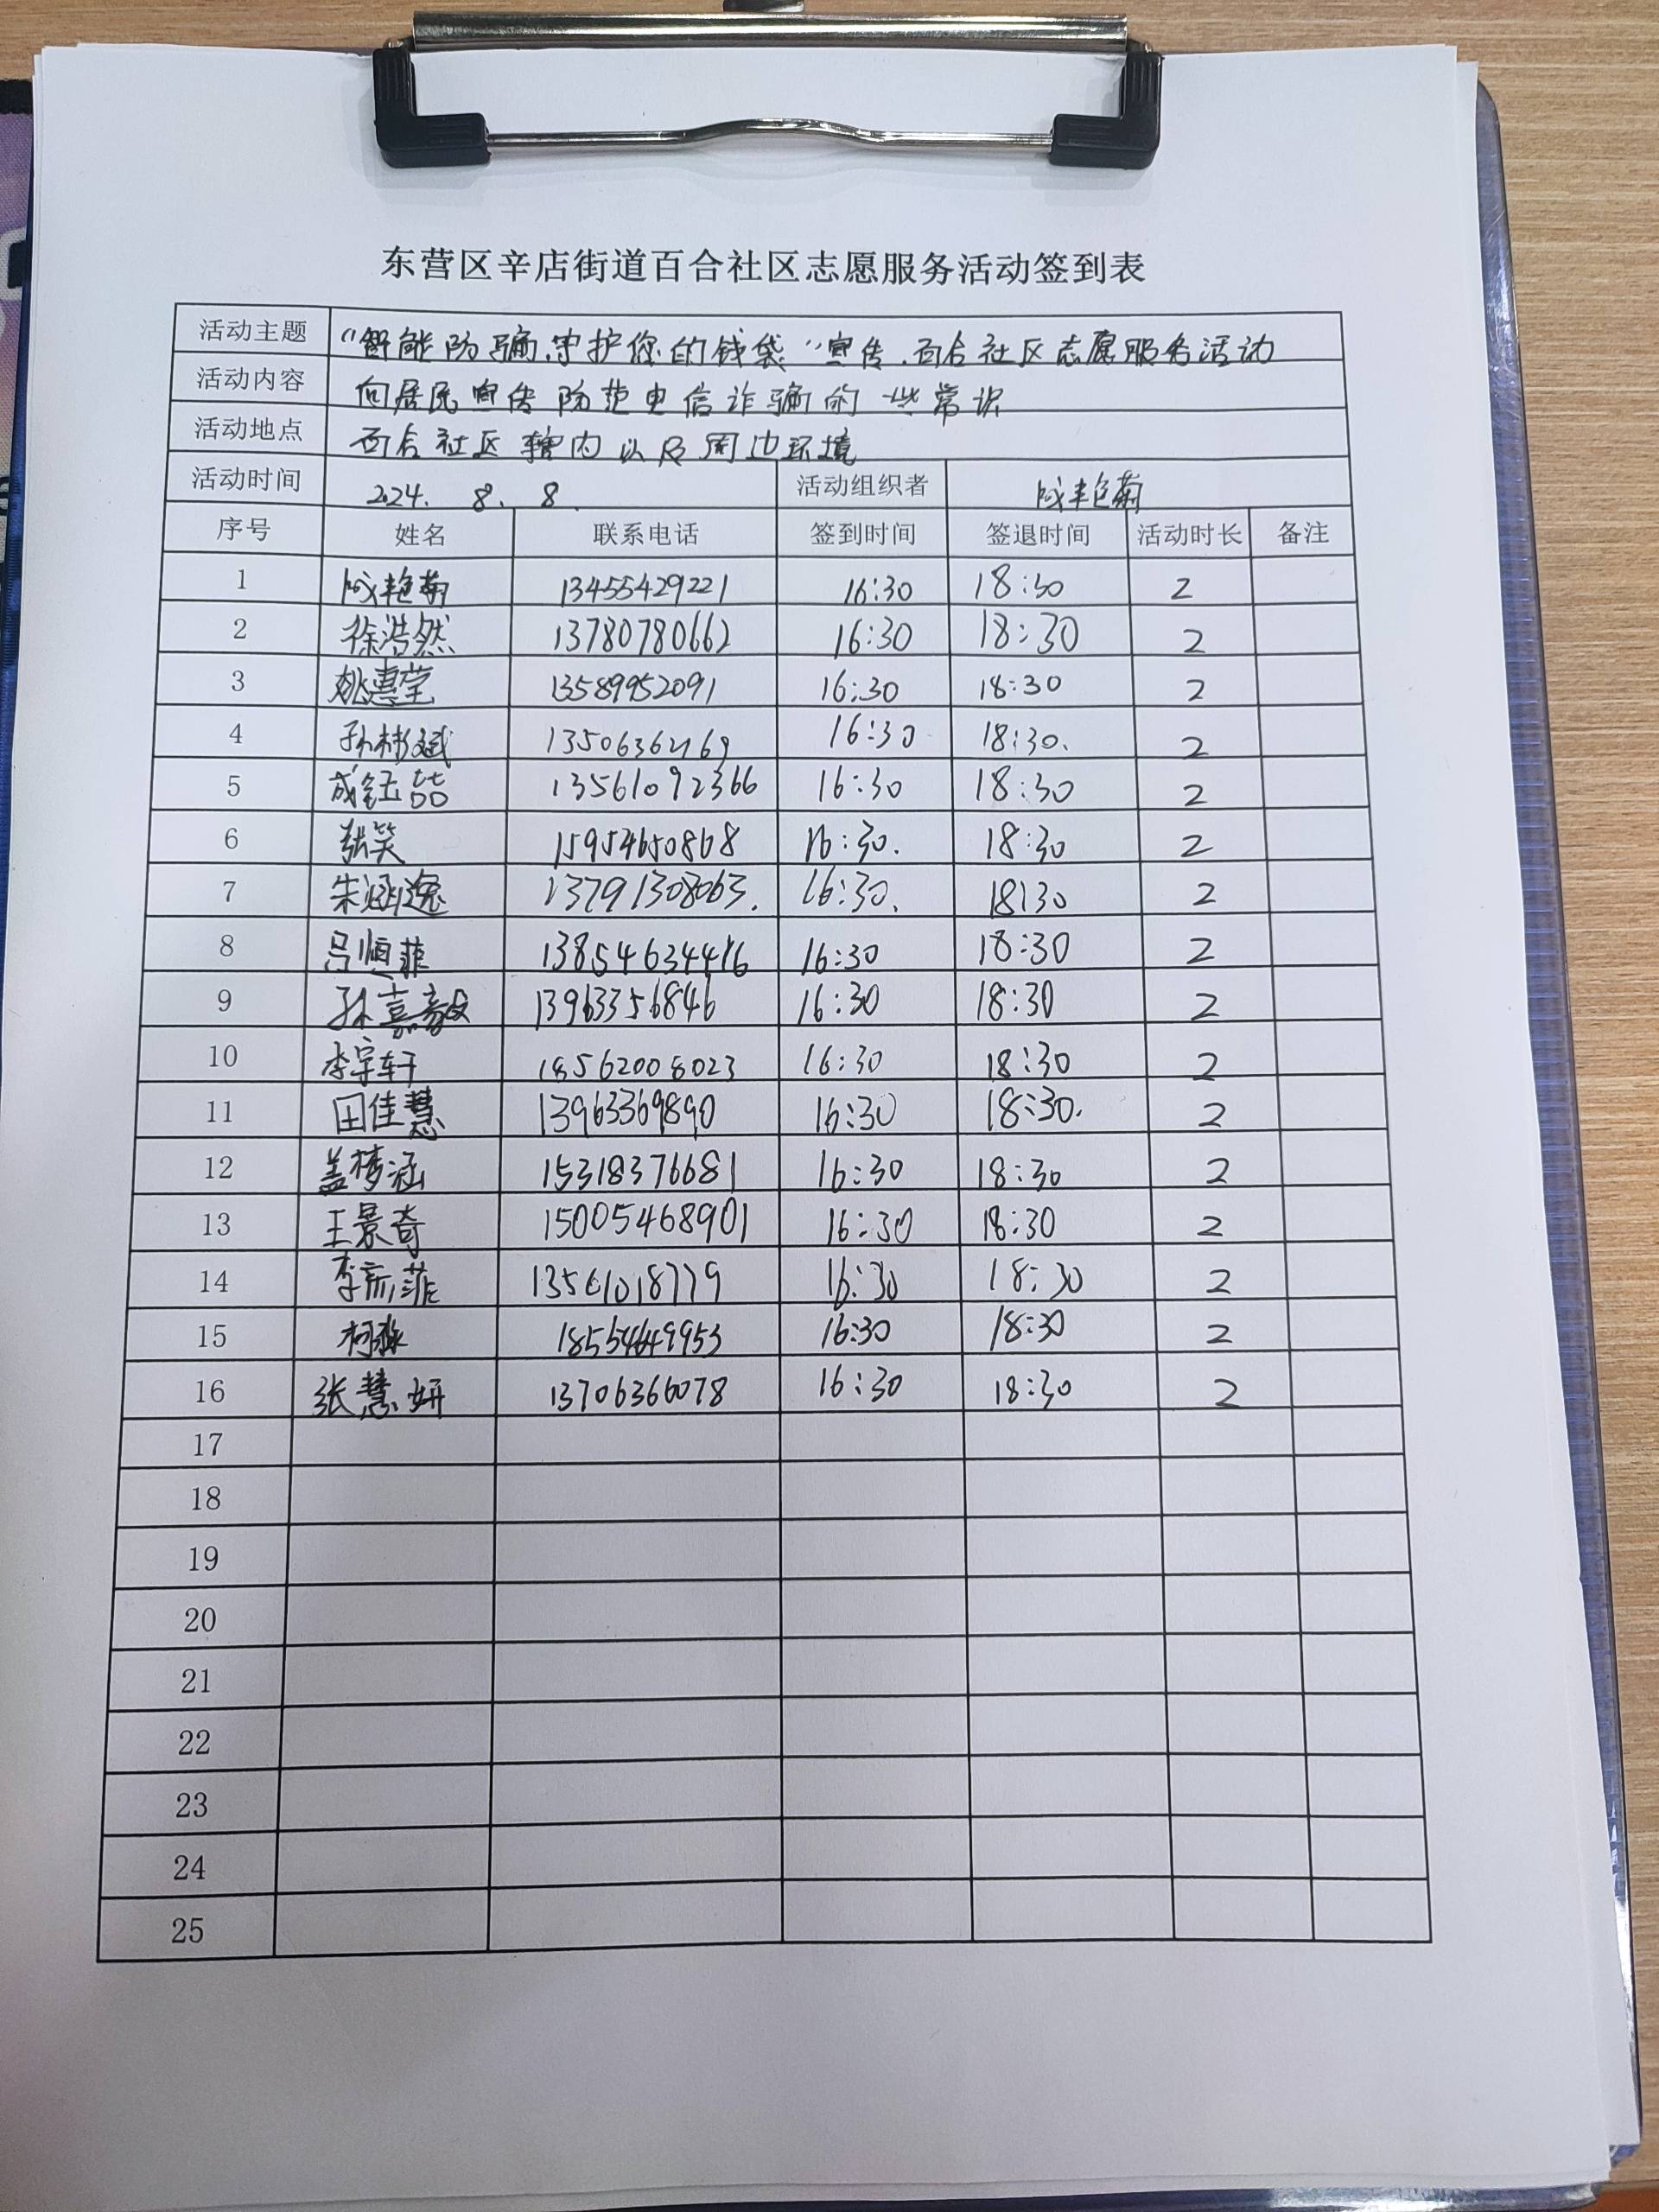 东营区辛店街道百合社区志愿服务活动签到表
活动主题 "智能防骗,守护您的钱袋"宣传.百合社区志愿服务活动
活动内容 向居民宣传防范电信诈骗的一些常识
活动地点 百合社区辖内以及周边环境
活动时间 2024. 8. 8. 活动组织者 成艳菊
序号 姓名 联系电话 签到时间 签退时间 活动时长 备注
1 成艳菊 13455429221 16:30 18:30 2
2 徐浩然 13780780662 16:30 18:30 2
3 姚惠莹 13589952091 16:30 18:30 2
4 孙彬斌 16:30 18:30. 2
5 成钰喆 13561092366 16:30 18:30 2
6 张笑 15954650868 16:30. 18:30 2
7 朱涵逸 13791308063. 16:30. 18:30 2
8 吕恒菲 13854634416 16:30 18:30 2
9 孙嘉毅 13963356846 16:30 18:30 2
10 李宇轩 18562008023 16:30 18:30 2
11 田佳慧 13963369890 16:30 18:30. 2
12 盖梦涵 15318376681 16:30 18:30 2
13 王景奇 15005468901 16:30 18:30 2
14 李亦菲 13561018779 16:30 18:30 2
15 18554649953 16:30 18:30 2
16 张慧妍 13706366078 16:30 18:30 2
17
18
19
20
21
22
23
24
25